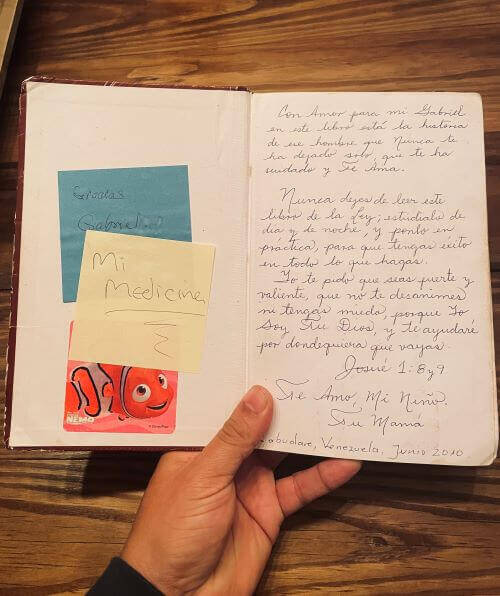 Gracias
Gabriel
Mi
Medicina
NEMO
Con Amor para mi Gabriel
en este libro está la historia
de ese hombre que Nunca te
ha dejado solo, que te ha
cuidado y Te Ama.
Nunca dejes de leer este
libro de la Ley; estúdialo de
día y de noche, y ponlo en
práctica, para que tengas éxito
en todo lo que hagas.
Yo te pido que seas fuerte y
valiente, que no te desanimes
ni tengas miedo, porque Yo
Soy Tu Dios, y te ayudaré
por dondequiera que vayas.
Josué 1:8y9
Te Amo, Mi Niño.
Tu Mamá
abudare, Venezuela, Junio 2010